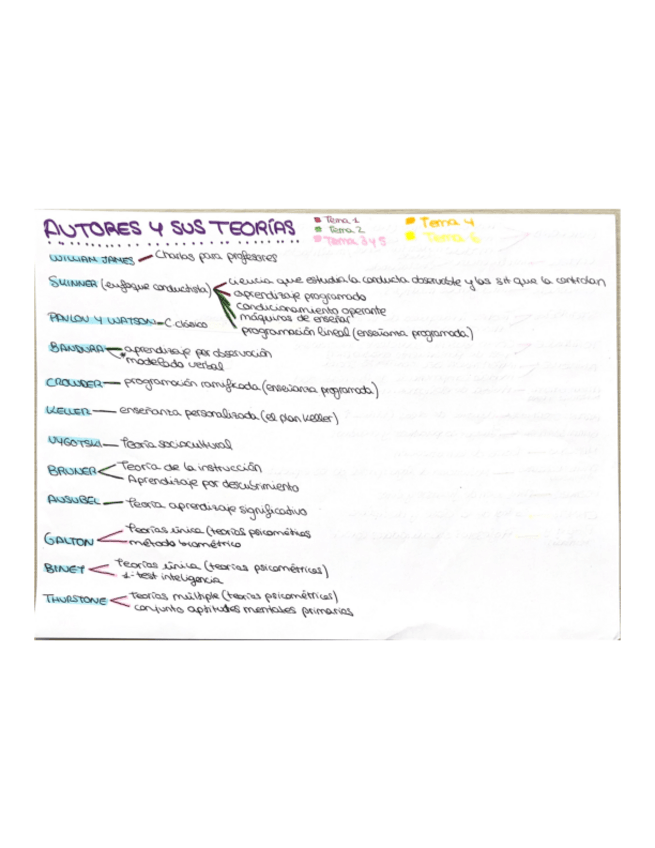 AUTORES Y SUS TEORÍAS
Tema 1
Tema 2
Tema 3 y 5
Tema 4
Tema 6
WILLIAN JAMES — Charlas para profesores
SKINNER (enfoque conductista)
ciencia que estudia la conducta observable y las sit que la controlan
aprendizaje programado
condicionamiento operante
máquinas de enseñar
programación lineal (enseñanza programada)
PAVLOV Y WATSON — C clásico
BANDURA
aprendizaje por observación
modelado verbal
CROWDER — programación ramificada (enseñanza programada)
KELLER — enseñanza personalizada (el plan Keller)
VYGOTSKI — Teoría sociocultural
BRUNER
Teoría de la instrucción
Aprendizaje por descubrimiento
AUSUBEL — Teoría aprendizaje significativo
GALTON
Teorías única (teorías psicométricas
método biométrico
BINET
Teorías única (teorías psicométricas)
1º test inteligencia
THURSTONE
Teorías múltiple (teorías psicométricas)
conjunto aptitudes mentales primarias